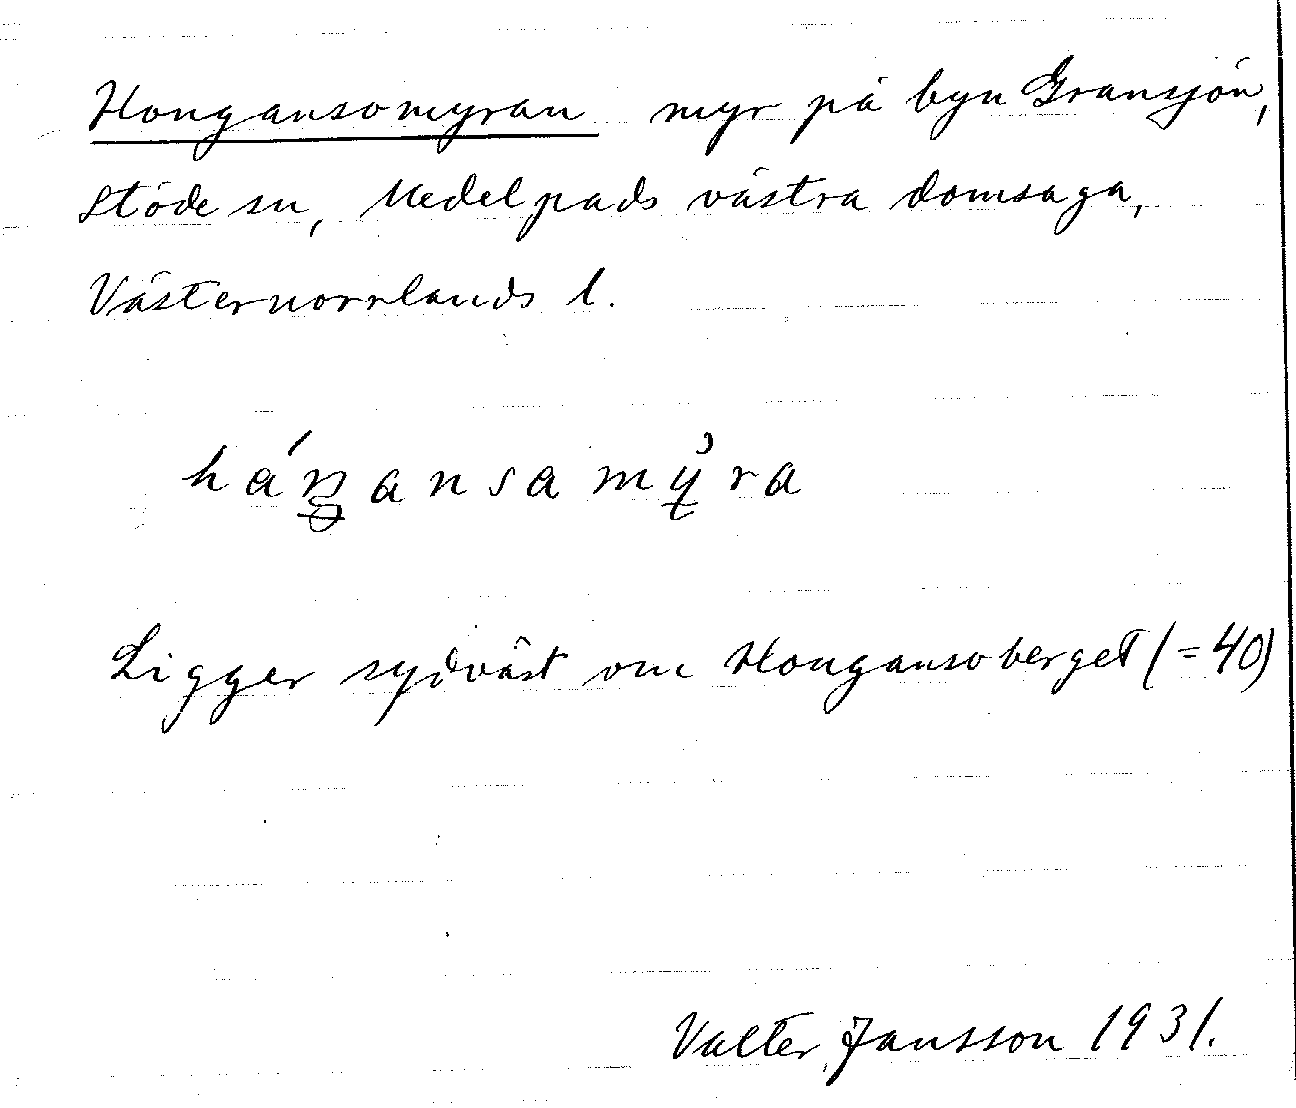 Hongansomyran myr på byn Gransjön,
Stöde sn, Medelpads västra domsaga,
Västernorrlands l.
háŋansamy̌ra
Ligger sydväst om Hongansoberget (=40)
Valter Jansson 1931.